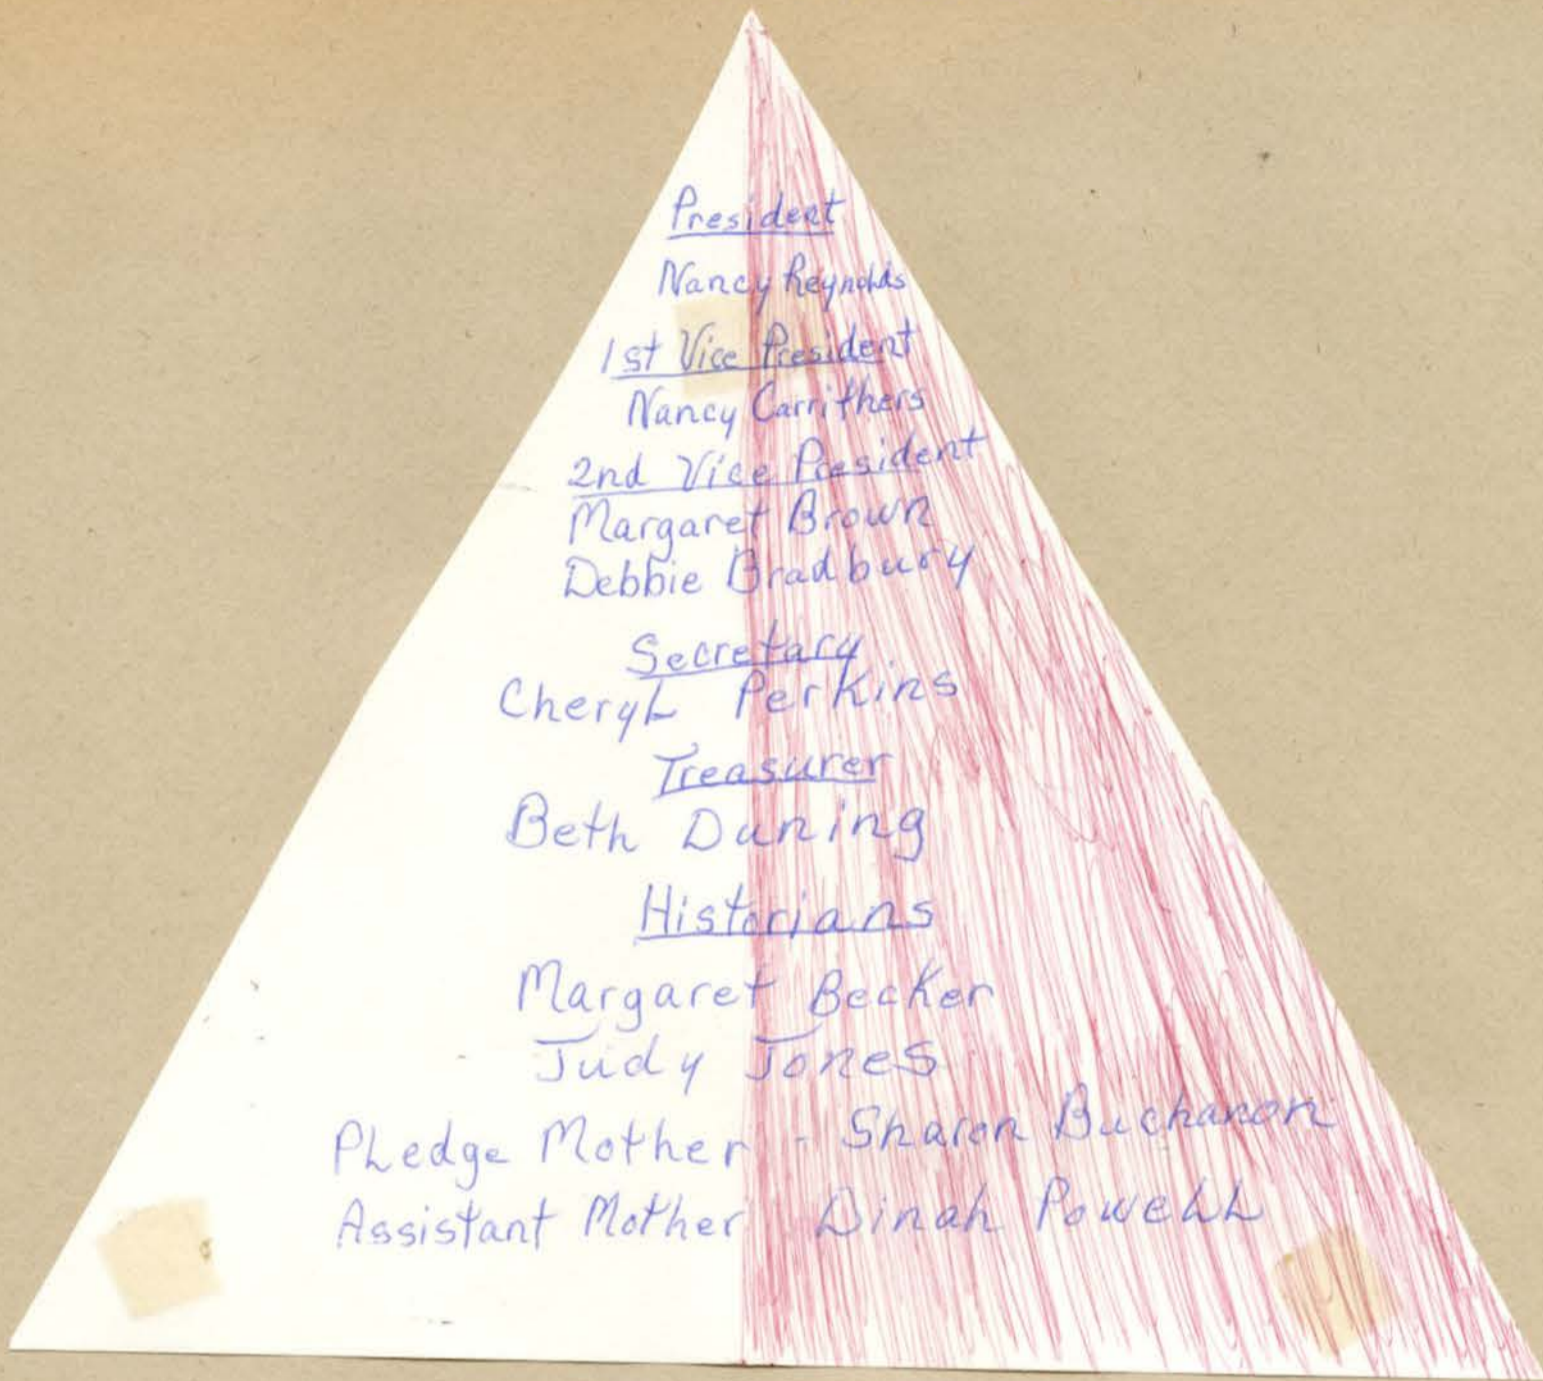 President
Nancy Reynolds
1st Vice President
Nancy Carrithers
2nd Vice President
Margaret Brown
Debbie Bradbury
Secretary
Cheryl Perkins
Treasurer
Beth Duning
Historians
Margaret Becker
Judy Jones
Pledge Mother - Sharon Buchanon
Assistant Mother Dinah Powell